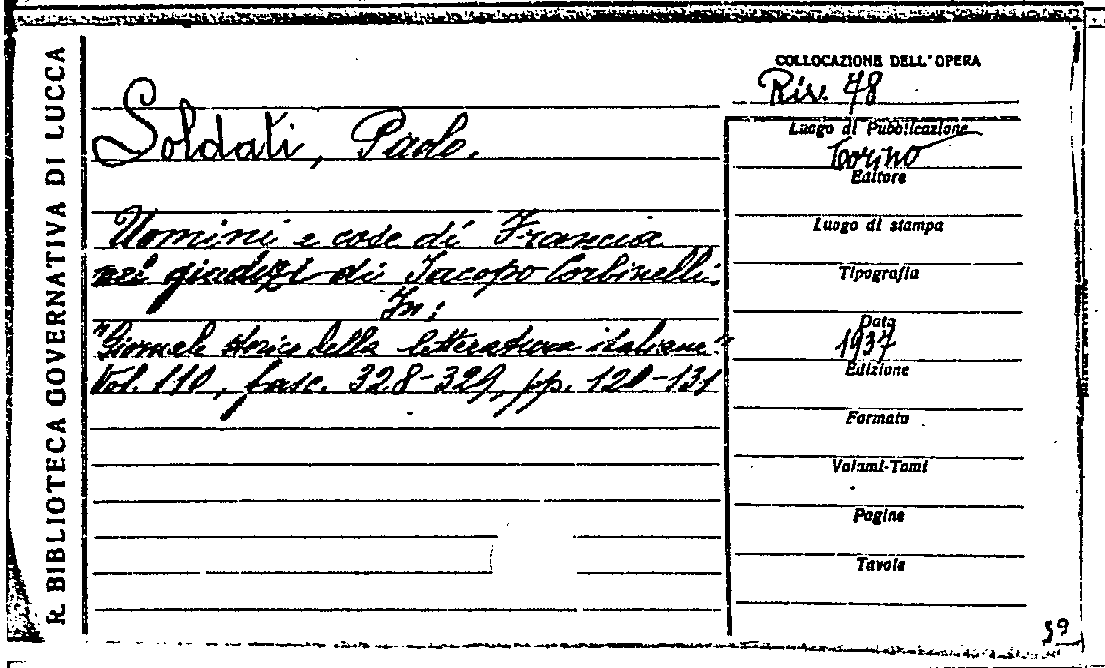 R. BIBLIOTECA GOVERNATIVA DI LUCCA
Soldati, Paolo.
Uomini e cose di Francia
nei giudizi di Jacopo Corbinelli.
In:
"Giornale storico della letteratura italiana"
Vol. 110, fasc. 328-329, pp. 120-131
COLLOCAZIONE DELL'OPERA
Riv. 48
Luogo di Pubblicazione
Torino
Editore
Luogo di stampa
Tipografia
Data
1937
Edizione
Formato
Volumi-Tomi
Pagine
Tavole
39